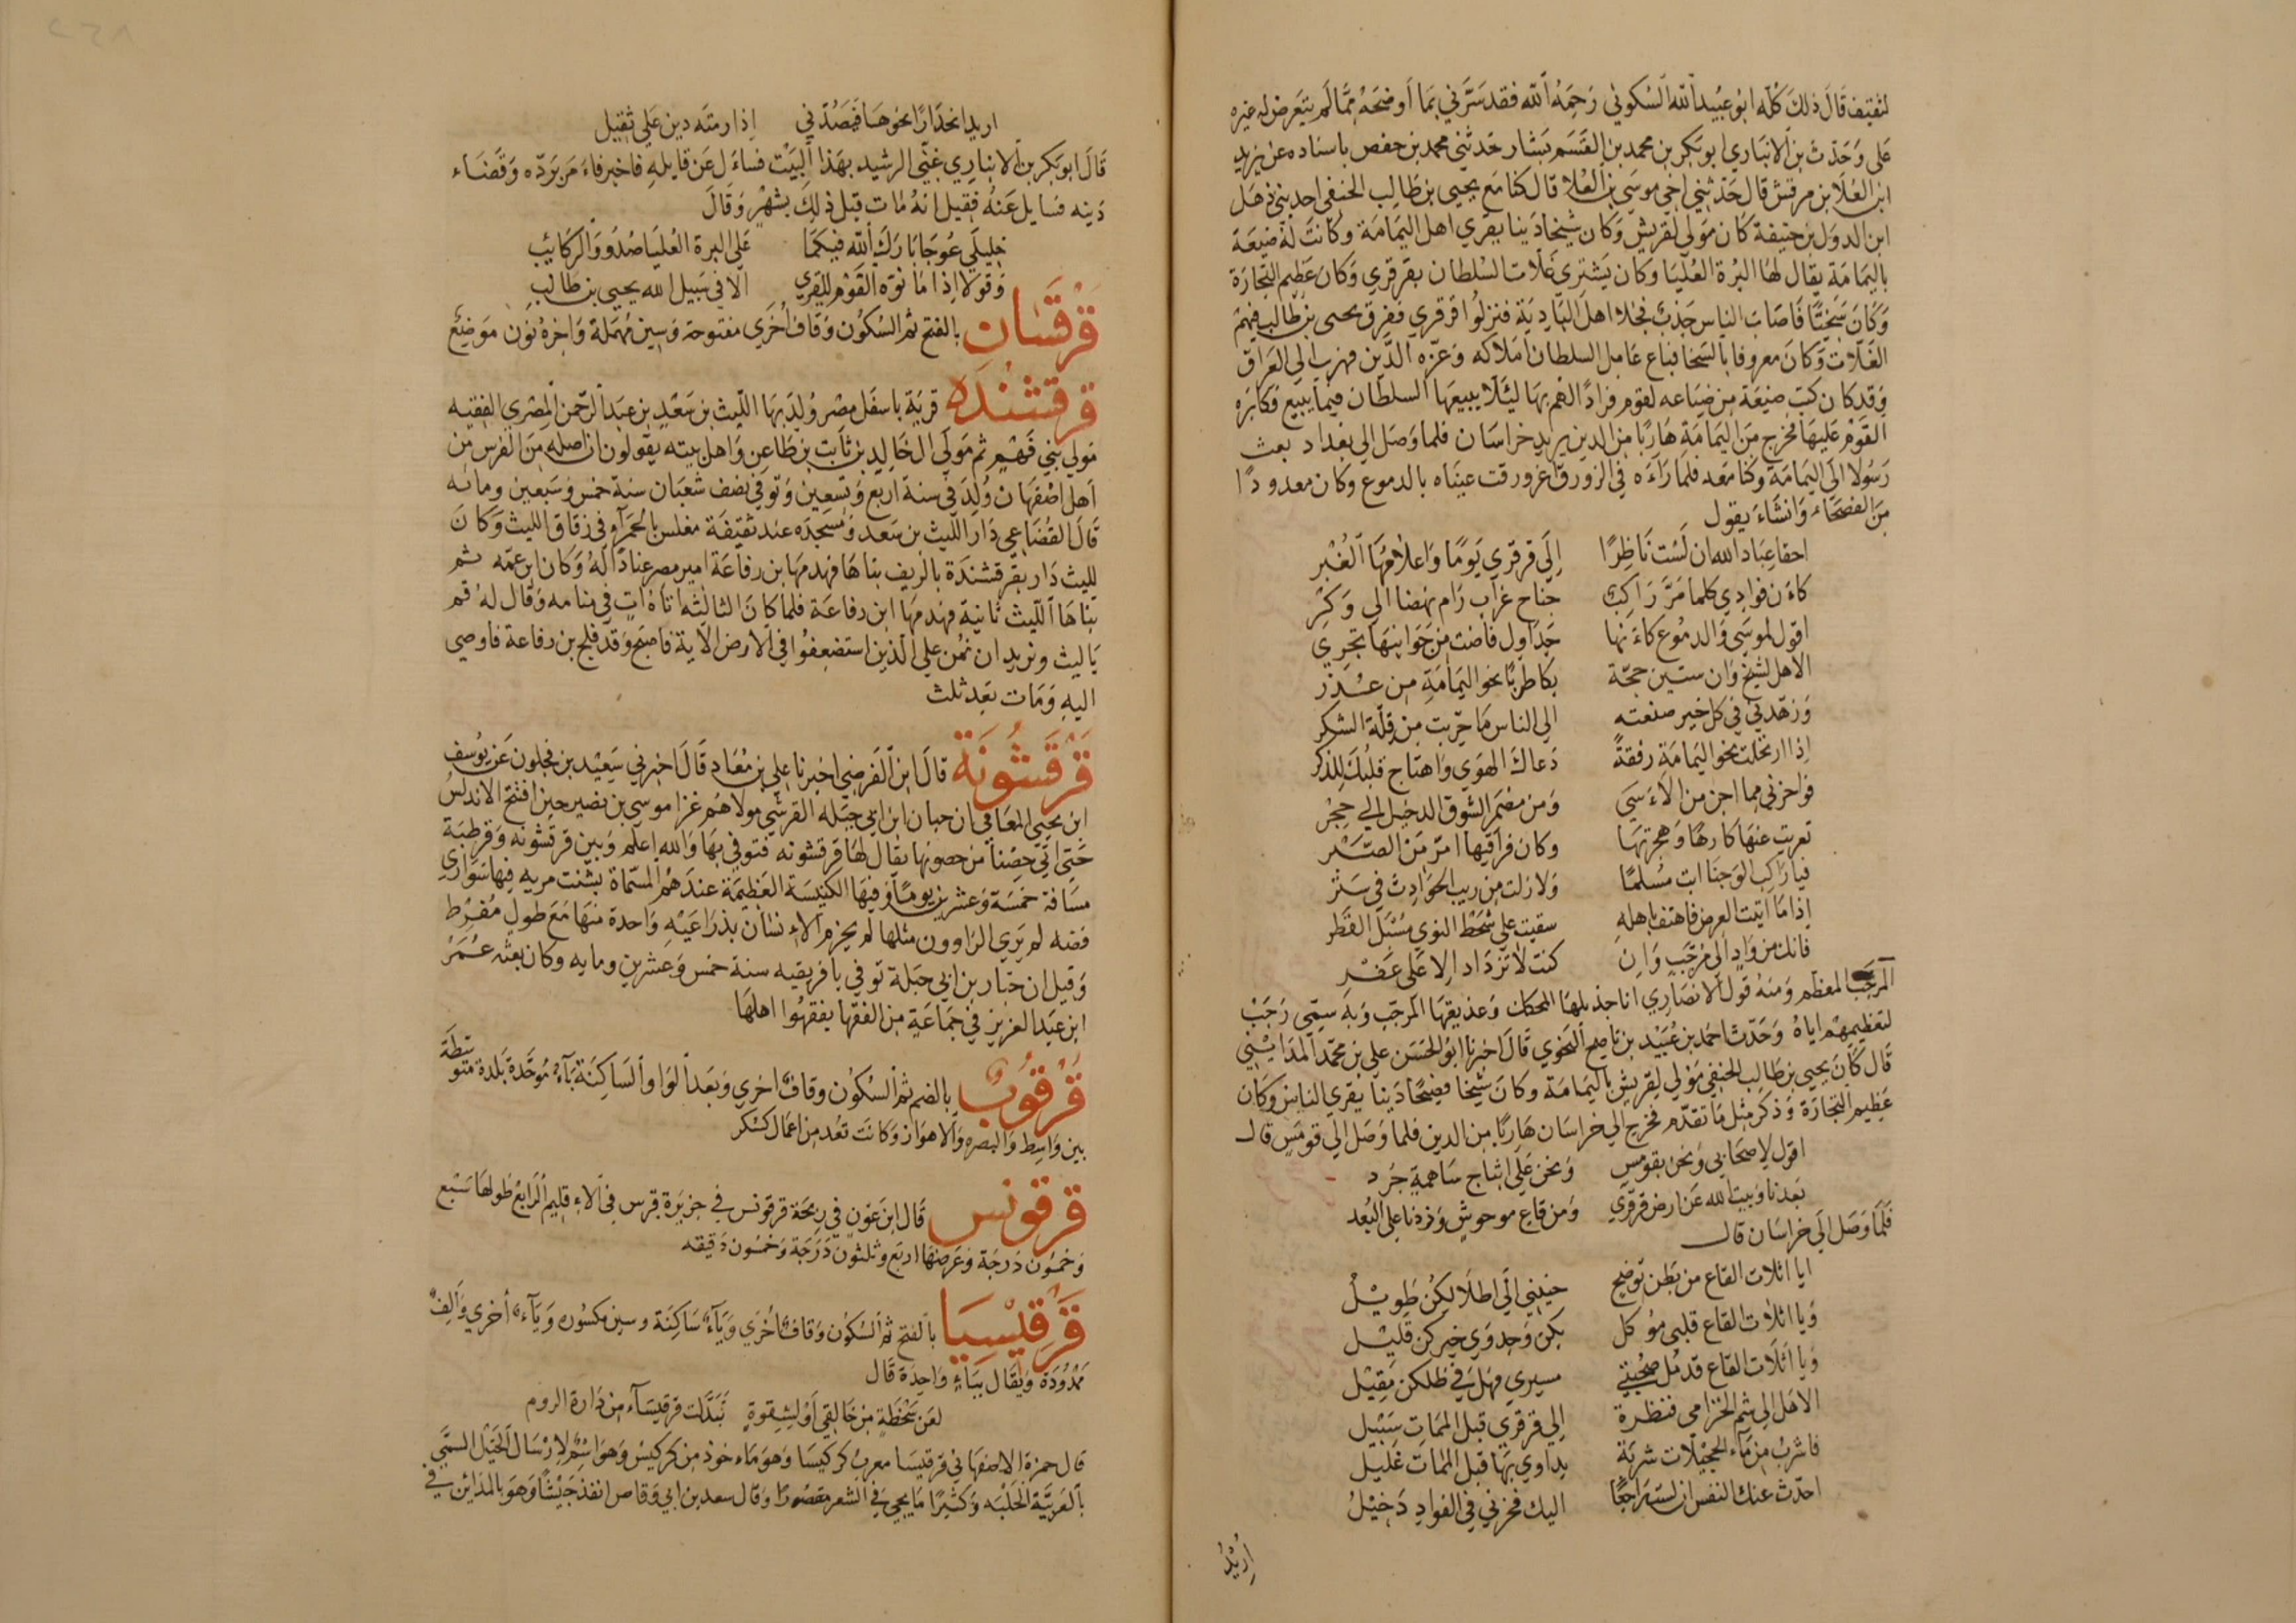 لثقيف قال ذلك كله ابو عبيد الله السكوني رحمه الله فقد سرني بما أوضحه مما لم يتعرض له غيره
على وحدث بن الانباري ابو بكر بن محمد بن القسم بشار حدثني محمد بن حفص باسناده عن يزيد
ابن العلا بن مرقش قال حدثني اخي موسى بن العلا قال كنا مع يحيى بن طالب الحنفي احد بني ذهل
ابن الدول بن حنيفة كان مولى لقريش وكان شيخا دينا يقري اهل اليمامة وكانت له ضيعة
باليمامة يقال لها البرة العليا وكان يشتري غلات السلطان بقرقرى وكان عظيم التجارة
وكان سخيا فاصاب الناس جدب فجلا اهل البادية فنزلوا قرقرى ففرق يحيى بن طالب فيهم
الغلات وكان معروفا بالسخا فباع عامل السلطان املاكه وعزه الدين فهرب الى العراق
وقد كان كتب ضيعة من ضياعه لقوم فرادا لهم بها ليلا يبيعها السلطان فيما يبيع فكابره
القوم عليها فخرج من اليمامة هاربا من الدين يريد خراسان فلما وصل الى بغداد بعث
رسولا الى اليمامة وكنا معه فلما راءه في الزورق اغرورقت عيناه بالدموع وكان معدودا
من الفصحاء وانشاء يقول
احقا عباد الله ان لست ناظرا الى قرقري يوما واعلامها الغبر
كاءن فوادي كلما مر راكب جناح غراب رام نهضا الى وكر
اقول لموسى والدموع كاءنها جداول فاضت من جوانبها تجري
الا هل لشيخ وان ستين حجة بكا طربا نحو اليمامة من عذر
وزهدني في كل خير صنعته الى الناس ما جربت من قلة الشكر
اذا ارتحلت نحو اليمامة رفقة دعاك الهوى واهتاج قلبك للذكر
فواحزني مما اجن من الاءسى ومن مضمر الشوق الدخيل الى حجر
تعريت عنها كارها وهجرتها وكان فراقيها امر من الصبر
فيا راكب الوجنا ابت مسلما ولا زلت من ريب الحوادث في ستر
اذا ما اتيت العرض فاهتف باهله سقيت على شحط النوى مسبل القطر
فانك من واد الى مرجب وان كنت لا تزداد الا على عفر
المرجب المعظم ومنه قول الانصاري انا جذيلها المحكك وعذيقها المرجب وبه سمى رجب
لتعظيمهم اياه وحدث احمد بن عبيد بن ناصح النحوي قال اخبرنا ابو الحسن علي بن محمد المدايني
قال كان يحيى بن طالب الحنفي مولى لقريش باليمامة وكان شيخا فصيحا دينا يقري الناس وكان
عظيم التجارة وذكر مثل ما تقدم فخرج الى خراسان هاربا من الدين فلما وصل الى قومس قال
اقول لاصحابي ونحن بقومس ونحن على اثباج ساهمة جرد
بعدنا وبيت الله عن ارض قرقري ومن قاع موحوش وزدنا على البعد
فلما وصل الى خراسان قال
ايا اثلات القاع من بطن توضح حنيني الى اطلالكن طويل
ويا اثلات القاع قلبي موكل بكن وجدوى خيركن قليل
ويا اثلات القاع قد مل صحبتي مسيري فهل في ظلكن مقيل
الا هل الى شم الخزامى ونظرة الى قرقري قبل الممات سبيل
فاشرب من ماء الحجيلات شربة يداوى بها قبل الممات غليل
احدث عنك النفس ان لست راجعا اليك فحزني في الفواد دخيل
اريد
اريد انحدارا نحوها فيصدني اذا رمته دين علي ثقيل
قال ابو بكر بن الانباري غني الرشيد بهذا البيت فساءل عن قايله فاخبر فاءمر برده وقضاء
دينه فسايل عنه فقيل انه مات قبل ذلك بشهر وقال
خليلي عوجا بارك الله فيكما على البرة العليا صدور الركايب
وقولا اذا ما نوه القوم للقرى الا في سبيل الله يحيى بن طالب
قرقسان بالفتح ثم السكون وقاف اخرى مفتوحة وسين مهملة واخره نون موضع
قرقشندة قرية باسفل مصر ولد بها الليث بن سعد بن عبد الرحمن المصري الفقيه
مولى بني فهم ثم مولى ال خالد بن ثابت بن ظاعن واهل بيته يقولون ان اصله من الفرس من
اهل اصفهان ولد في سنة اربع وتسعين وتوفي نصف شعبان سنة خمس وسبعين ومائه
قال القضاعي دار الليث بن سعد ومسجده عند ثقيفة مغلس بالحمراء في زقاق الليث وكان
لليث دار بقرقشندة بالريف بناها فهدمها ابن رفاعة امير مصر عنادا له وكان ابن عمه ثم
بناها الليث ثانية فهدمها ابن رفاعة فلما كان الثالثه اتاه ات في منامه وقال له قم
يا ليث ونريد ان نمن على الذين استضعفوا في الارض الاية فاصبح وقد فلج بن رفاعة فاوصى
اليه ومات بعد ثلث
قرقشونة قال ابن الفرضي اخبرنا علي بن معاد قال اخبرني سعيد بن فجلون عن يوسف
ابن يحيى المغامي ان حبان ابن ابي جبله القرشي مولاهم غزا موسى بن نصير حين افتتح الاندلس
حتى اتى حصنا من حصونها يقال لها قرقشونه فتوفي بها والله اعلم وبين قرقشونه وقرطبة
مسافة خمسة وعشرين يوما وفيها الكنيسة العظيمة عندهم المسماة بشنت مريه فيها سواري
فضه لم يري الراوون مثلها لم يحزم الاءنسان بذراعيه واحدة منها مع طول مفرط
وقيل ان حبار بن ابي جبلة توفي بافريقيه سنة خمس وعشرين ومايه وكان بعثه عمر
ابن عبد العزيز في جماعة من الفقها يفقهوا اهلها
قرقوب بالضم ثم السكون وقاف اخرى وبعد الواو الساكنة باء موحدة بلدة متوسطة
بين واسط والبصره والاهواز وكانت تعد من اعمال كسكر
قرقونس قال ابن عون في زيجة قرقونس في جزيرة قبرس في الاءقليم الرابع طولها سبع
وخمسون درجة وعرضها اربع وثلثون درجة وخمسون دقيقه
قرقيسيا بالفتح ثم السكون وقاف اخرى وياء ساكنة وسين مكسوره وياء اخرى والف
ممدودة ويقال بياء واحدة قال
لعن سخطة من خالقي او لشقوة تبدلت قرقيساء من دارة الروم
قال حمزة الاصفهاني قرقيسا معرب كركيسا وهو ماءخوذ من كركيس وهو اسم لارسال الخيل المسمى
بالعربية الحلبه وكثيرا ما يجيء في الشعر مقصورا وقال سعد بن ابي وقاص انفذ جيشا وهو بالمدائن في